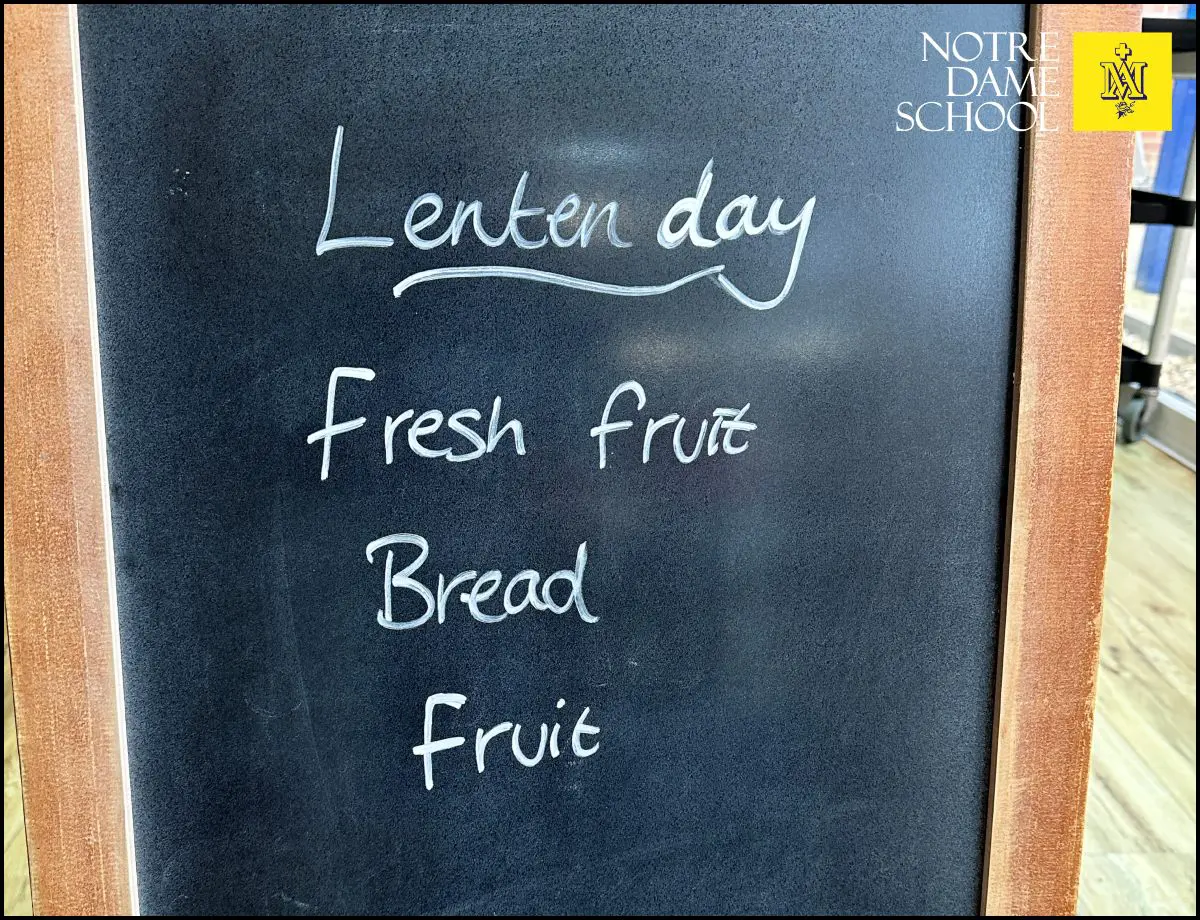 NOTRE
DAME
SCHOOL
Lenten day
Fresh fruit
Bread
Fruit